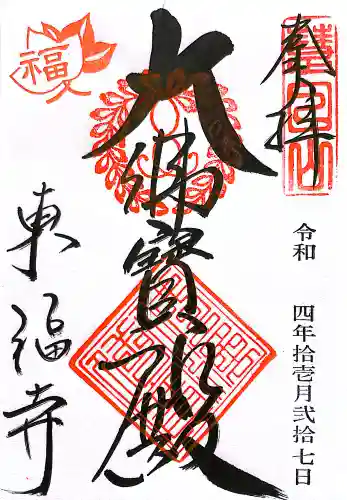 奉拝
慧日山
令和 四年拾壱月弐拾七日
大佛寶殿
福
東福寺